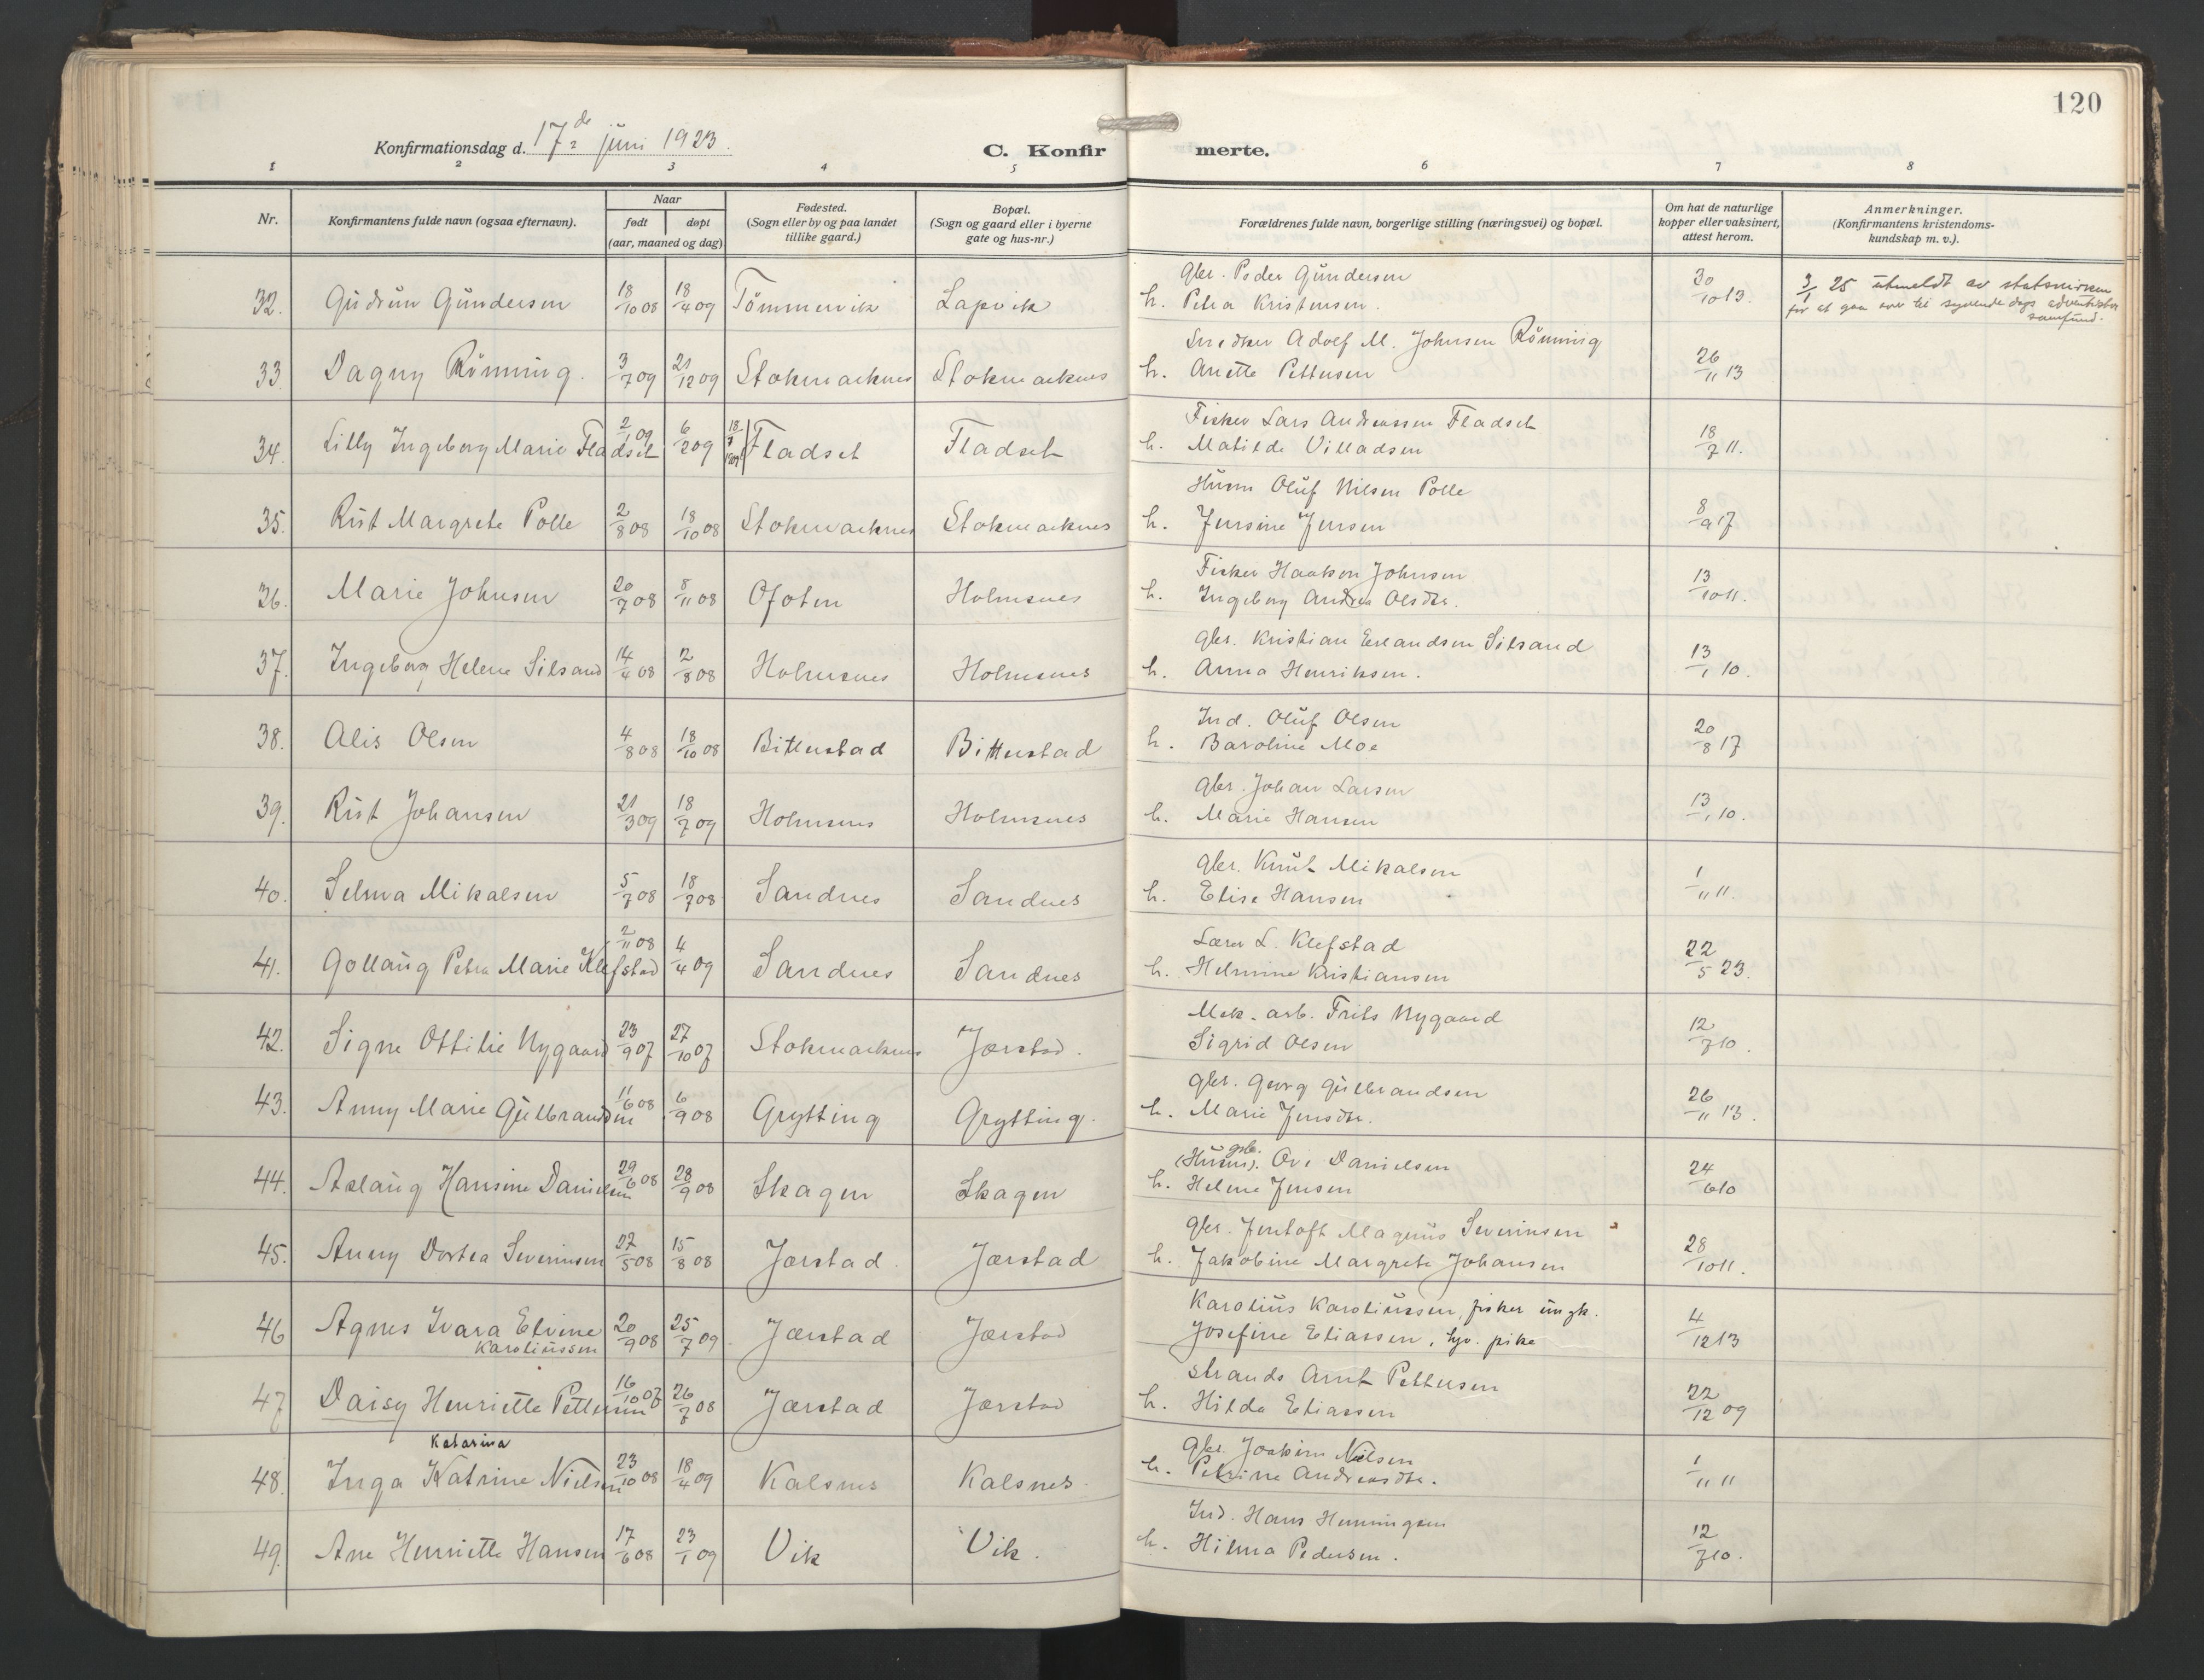 120
Konfirmationsdag d. 17de juni 1923.
C. Konfirmerte.
1 2 3 4 5 6 7 8
Nr.
Konfirmantens fulde navn (ogsaa efternavn).
Naar
født døpt
(aar, maaned og dag)
Fødested.
(Sogn eller by og paa landet
tillike gaard.)
Bopæl.
(Sogn og gaard eller i byerne
gate og hus-nr.)
Forældrenes fulde navn, borgerlige stilling (næringsvei) og bopæl.
Om hat de naturlige
kopper eller vaksinert,
attest herom.
Anmerkninger.
(Konfirmantens kristendoms-
kundskap m. v.).
32. Gudrun Gundersen 18/10 08 18/4 09 Tömmervik Lapvik
Gbr. Peder Gundersen
h. Petra Kristensen. 30/10 13.
3/1 25 utmeldt av statskirken
for at gaa over til syvende dags adventister
samfund.
33. Dagny Rönning. 3/7 09 21/12 09 Stokmarknes Stokmarknes
Snedker Adolf M. Johnsen Rönning
h. Anette Pettersen 26/11 13
34. Lilly Ingeborg Marie Fladset 2/1 09 6/2 09 18/7 1909 Fladset Fladset
Fisker Lars Andreassen Fladset
h. Matilde Villadsen 18/7 11.
35. Rut Margrete Polle 2/8 08 18/10 08 Stokmarknes Stokmarknes
Husm Oluf Nilsen Polle
h. Jensine Jensen 8/9 17
36. Marie Johnsen 20/7 08 8/11 08 Ofoten Holmsnes
Fisker Haakon Johnsen
h. Ingeborg Andrea Olsdtr. 13/10 11.
37. Ingeborg Helene Silsand 14/4 08 2/8 08 Holmsnes Holmsnes
Gbr. Kristian Erlandsen Silsand
h. Anna Henriksen. 13/1 10.
38. Alis Olsen 4/8 08 18/10 08 Bitterstad Bitterstad
Ind. Oluf Olsen
h. Baroline Moe 20/8 17
39. Rut Johansen 21/3 09 18/7 09 Holmsnes Holmsnes
Gbr. Johan Larsen
h. Marie Hansen 13/1 10.
40. Selma Mikalsen 5/7 08 18/7 08 Sandnes Sandnes
Gbr. Knut Mikalsen
h. Elise Hansen 1/11 11.
41. Gollaug Petra Marie Klefstad 2/11 08 4/4 09 Sandnes Sandnes
Lærer L. Klefstad
h. Helmine Kristiansen 22/5 23.
42. Signe Ottilie Nygaard 23/9 07 27/10 07 Stokmarknes Jørstad.
Mek. arb. Frits Nygaard
Sigrid Olsen 12/7 10.
43. Anny Marie Gulbrandsen 11/6 08 6/9 08 Grytting Grytting.
Gbr. Georg Gulbrandsen
h. Marie Jensdtr. 26/11 13.
44. Aslaug Hansine Danielsen 29/6 08 28/9 08 Skagen Skagen
gbr.
(Husm). Ove Danielsen
h. Helene Jensen 24/6 10
45. Anny Dortea Severinsen 27/5 08 15/8 08 Jørstad. Jørstad
Gbr. Jentoft Magnus Severinsen
h. Jakobine Margrete Johansen 28/10 11.
46 Agnes Ivara Elvine 20/9 08 25/7 09. Jørstad Jørstad
Karoliussen
Karolius Karoliussen, fisker ungk.
Josefine Eliassen, tjv. pike 4/12 13
47 Daisy Henriette Pettersen 16/10 07 26/7 08 Jørstad Jørstad
Strands Arnt Pettersen
h. Hilda Eliassen 22/12 09
Katarina
48. Inga Katrine Nielsen 23/10 08 18/4 09 Kalsnes Kalsnes
Gbr. Joakim Nielsen
h. Petrine Andreasdtr. 1/11 11
49. Ane Henriette Hansen 17/6 08 23/1 09 Vik Vik.
Ind. Hans Henningsen
h. Hilma Pedersen. 12/7 10.